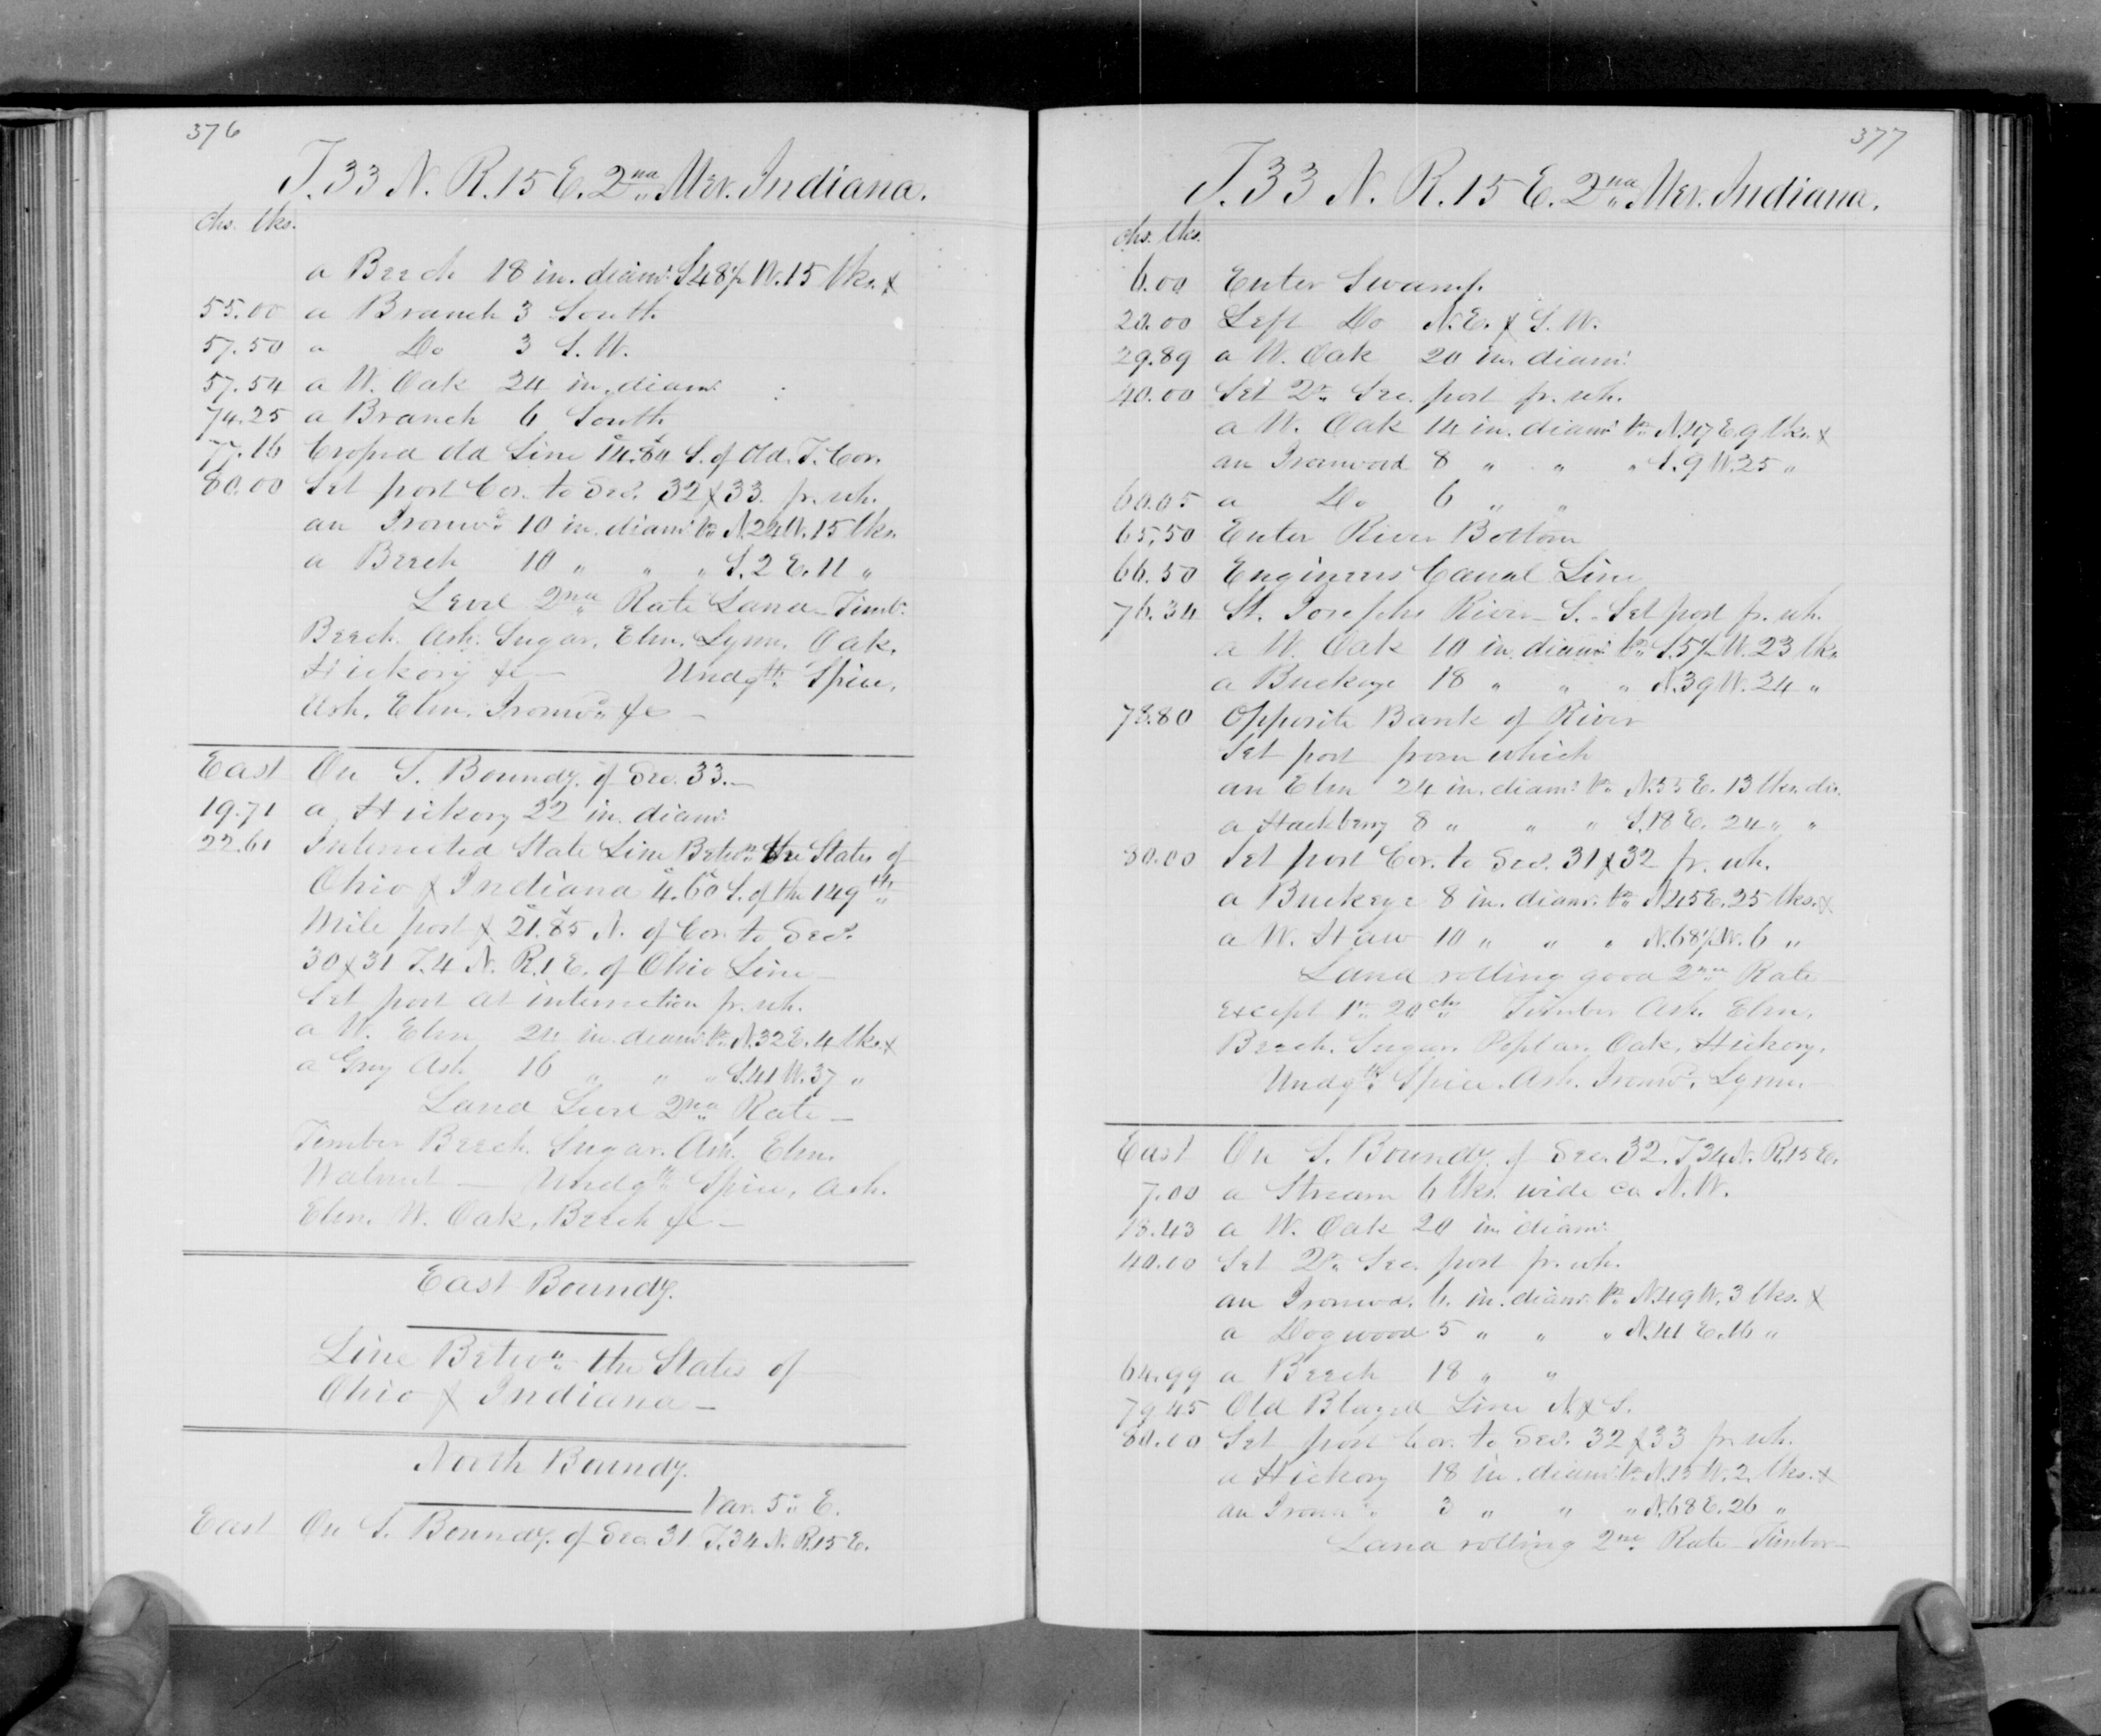 376
T. 33 N. R. 15 E. 2nd Mer. Indiana.
chs. lks.
a Beech 18 in. diam. S 48½ W. 15 lks. &
55.00 a Branch 3 South
57.50 a Do 3 S. W.
57.54 a W. Oak 24 in. diam.
74.25 a Branch 6 South
77.16 Crossed Old Line 14.84 S. of Old T. Cor.
80.00 Set post Cor. to Secs. 32 & 33 fr. wh.
an Ironwd 10 in. diam. br. N. 24 W. 15 lks.
a Beech 10 " " " S. 2 E. 11 "
Level 2nd Rate Land – Timbr.
Beech. Ash. Sugar. Elm. Lynn. Oak.
Hickory &c — Undgth. Spice,
Ash. Elm. Ironwd. &c —
East On S. Boundy. of Sec. 33. —
19.71 a Hickory 22 in. diam.
22.61 Intersected State Line Betwn. the States of
Ohio & Indiana 4.60 S. of the 149th
Mile post & 21.85 N. of Cor. to Secs.
30 & 31 T. 4 N. R. 1 E. of Ohio Line —
Set post at intersection fr. wh.
a W. Elm 24 in. diam. br. N. 32 E. 4 lks. &
a Grey Ash 16 " " " S. 41 W. 37 "
Land Level 2nd Rate —
Timber Beech. Sugar. Ash. Elm.
Walnut — Undgth. Spice, Ash.
Elm. W. Oak, Beech &c —
East Boundy.
Line Betwn. the States of
Ohio & Indiana —
North Boundy.
Var. 5° E.
East On S. Boundy. of Sec. 31 T. 34 N. R. 15 E.
377
T. 33 N. R. 15 E. 2nd Mer. Indiana.
chs. lks.
6.00 Enter Swamp.
20.00 Left Do N. E. & S. W.
29.89 a W. Oak 20 in. diam.
40.00 Set Qr. Sec. post fr. wh.
a W. Oak 14 in. diam. br. N. 47 E. 9 lks. &
an Ironwood 8 " " " S. 9 W. 25 "
60.05 a Do 6 " "
65.50 Enter River Bottom
66.50 Engineers Canal Line
76.34 St. Josephs River – S. – Set post fr. wh.
a W. Oak 10 in. diam. br. S. 5½ W. 23 lks
a Buckeye 18 " " " N. 39 W. 24 "
78.80 Opposite Bank of River
Set post from which
an Elm 24 in. diam. br. N. 55 E. 13 lks. dis.
a Hackberry 8 " " " S. 18 E. 24 " "
80.00 Set post Cor. to Secs. 31 & 32 fr. wh.
a Buckeye 8 in. diam. br. N. 45 E. 25 lks. &
a W. Haw 10 " " " N. 68½ W. 6 "
Land rolling good 2nd Rate
except 1st 20 chs Timber Ash. Elm.
Beech. Sugar. Poplar. Oak. Hickory.
Undgth. Spice. Ash. Ironwd. Lynn.
East On S. Boundy. of Sec. 32. T 34 N. R. 15 E.
7.00 a Stream 6 lks. wide co. N. W.
13.43 a W. Oak 20 in diam.
40.00 Set Qr. Sec. post fr. wh.
an Ironwd. 6. in. diam. br. N. 49 W. 3 lks. &
a Dogwood 5 " " " N. 41 E. 16 "
64.99 a Beech 18 " "
79.45 Old Blazed Line N. & S.
80.00 Set post Cor. to Secs. 32 & 33 fr. wh.
a Hickory 18 in. diam. br. N. 15 W. 2. lks. &
an Ironwd. 3 " " " N. 68 E. 26 "
Land rolling 2nd Rate – Timber —